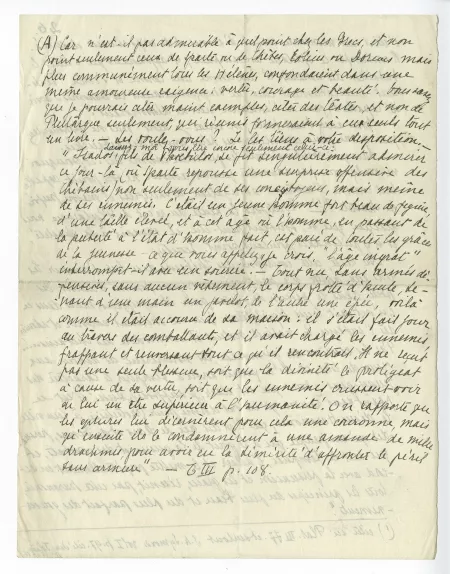 (A) Car n'est-il pas admirable à quel point chez les Grecs, et non
point seulement ceux de Sparte ou de Thèbes, Eoliens ou Doriens mais
plus communément tous les Hélènes, confondaient dans une
même amoureuse exigence: vertu, courage et beauté. Vous savez
que je pourrais citer maint exemples, citer des textes, et non de
Plutarque seulement, qui réunis formeraient à eux seuls tout
un livre. — Les voulez-vous? Je les tiens à votre disposition, —
laissez-moi d'après lire encore seulement celui-ci:
"Isadas, fils de Phoebidas, se fit singulièrement admirer
ce jour-là (où Sparte repousse une surprise offensive des
Thébains) non seulement de ses concitoyens, mais même
de ses ennemis. C'était un jeune homme fort beau de figure,
d'une taille élevée, et à cet âge où l'homme, en passant de
la puberté à l'état d'homme fait, est paré de toutes les grâces
de la jeunesse — ce que vous appelez, je crois, l'âge ingrat"
interrompit-il avec un sourire. — Tout nu, sans armes dé-
fensives, sans aucun vêtement, le corps frotté d'huile, te-
nant d'une main un javelot, de l'autre une épée, voilà
comme il était accouru de sa maison: il s'était fait jour
au travers des combattants, et il avait chargé les ennemis
frappant et renversant tout ce qu'il rencontrait. Il ne reçut
pas une seule blessure, soit que la divinité le protégeât
à cause de sa vertu, soit que les ennemis crussent voir
en lui un être supérieur à l'humanité. On rapporte que
les éphores lui décernèrent pour cela une couronne mais
qu'ensuite ils le condamnèrent à une amende de mille
drachmes pour avoir eu la témérité d'affronter le péril
sans armure" — T III p. 108.